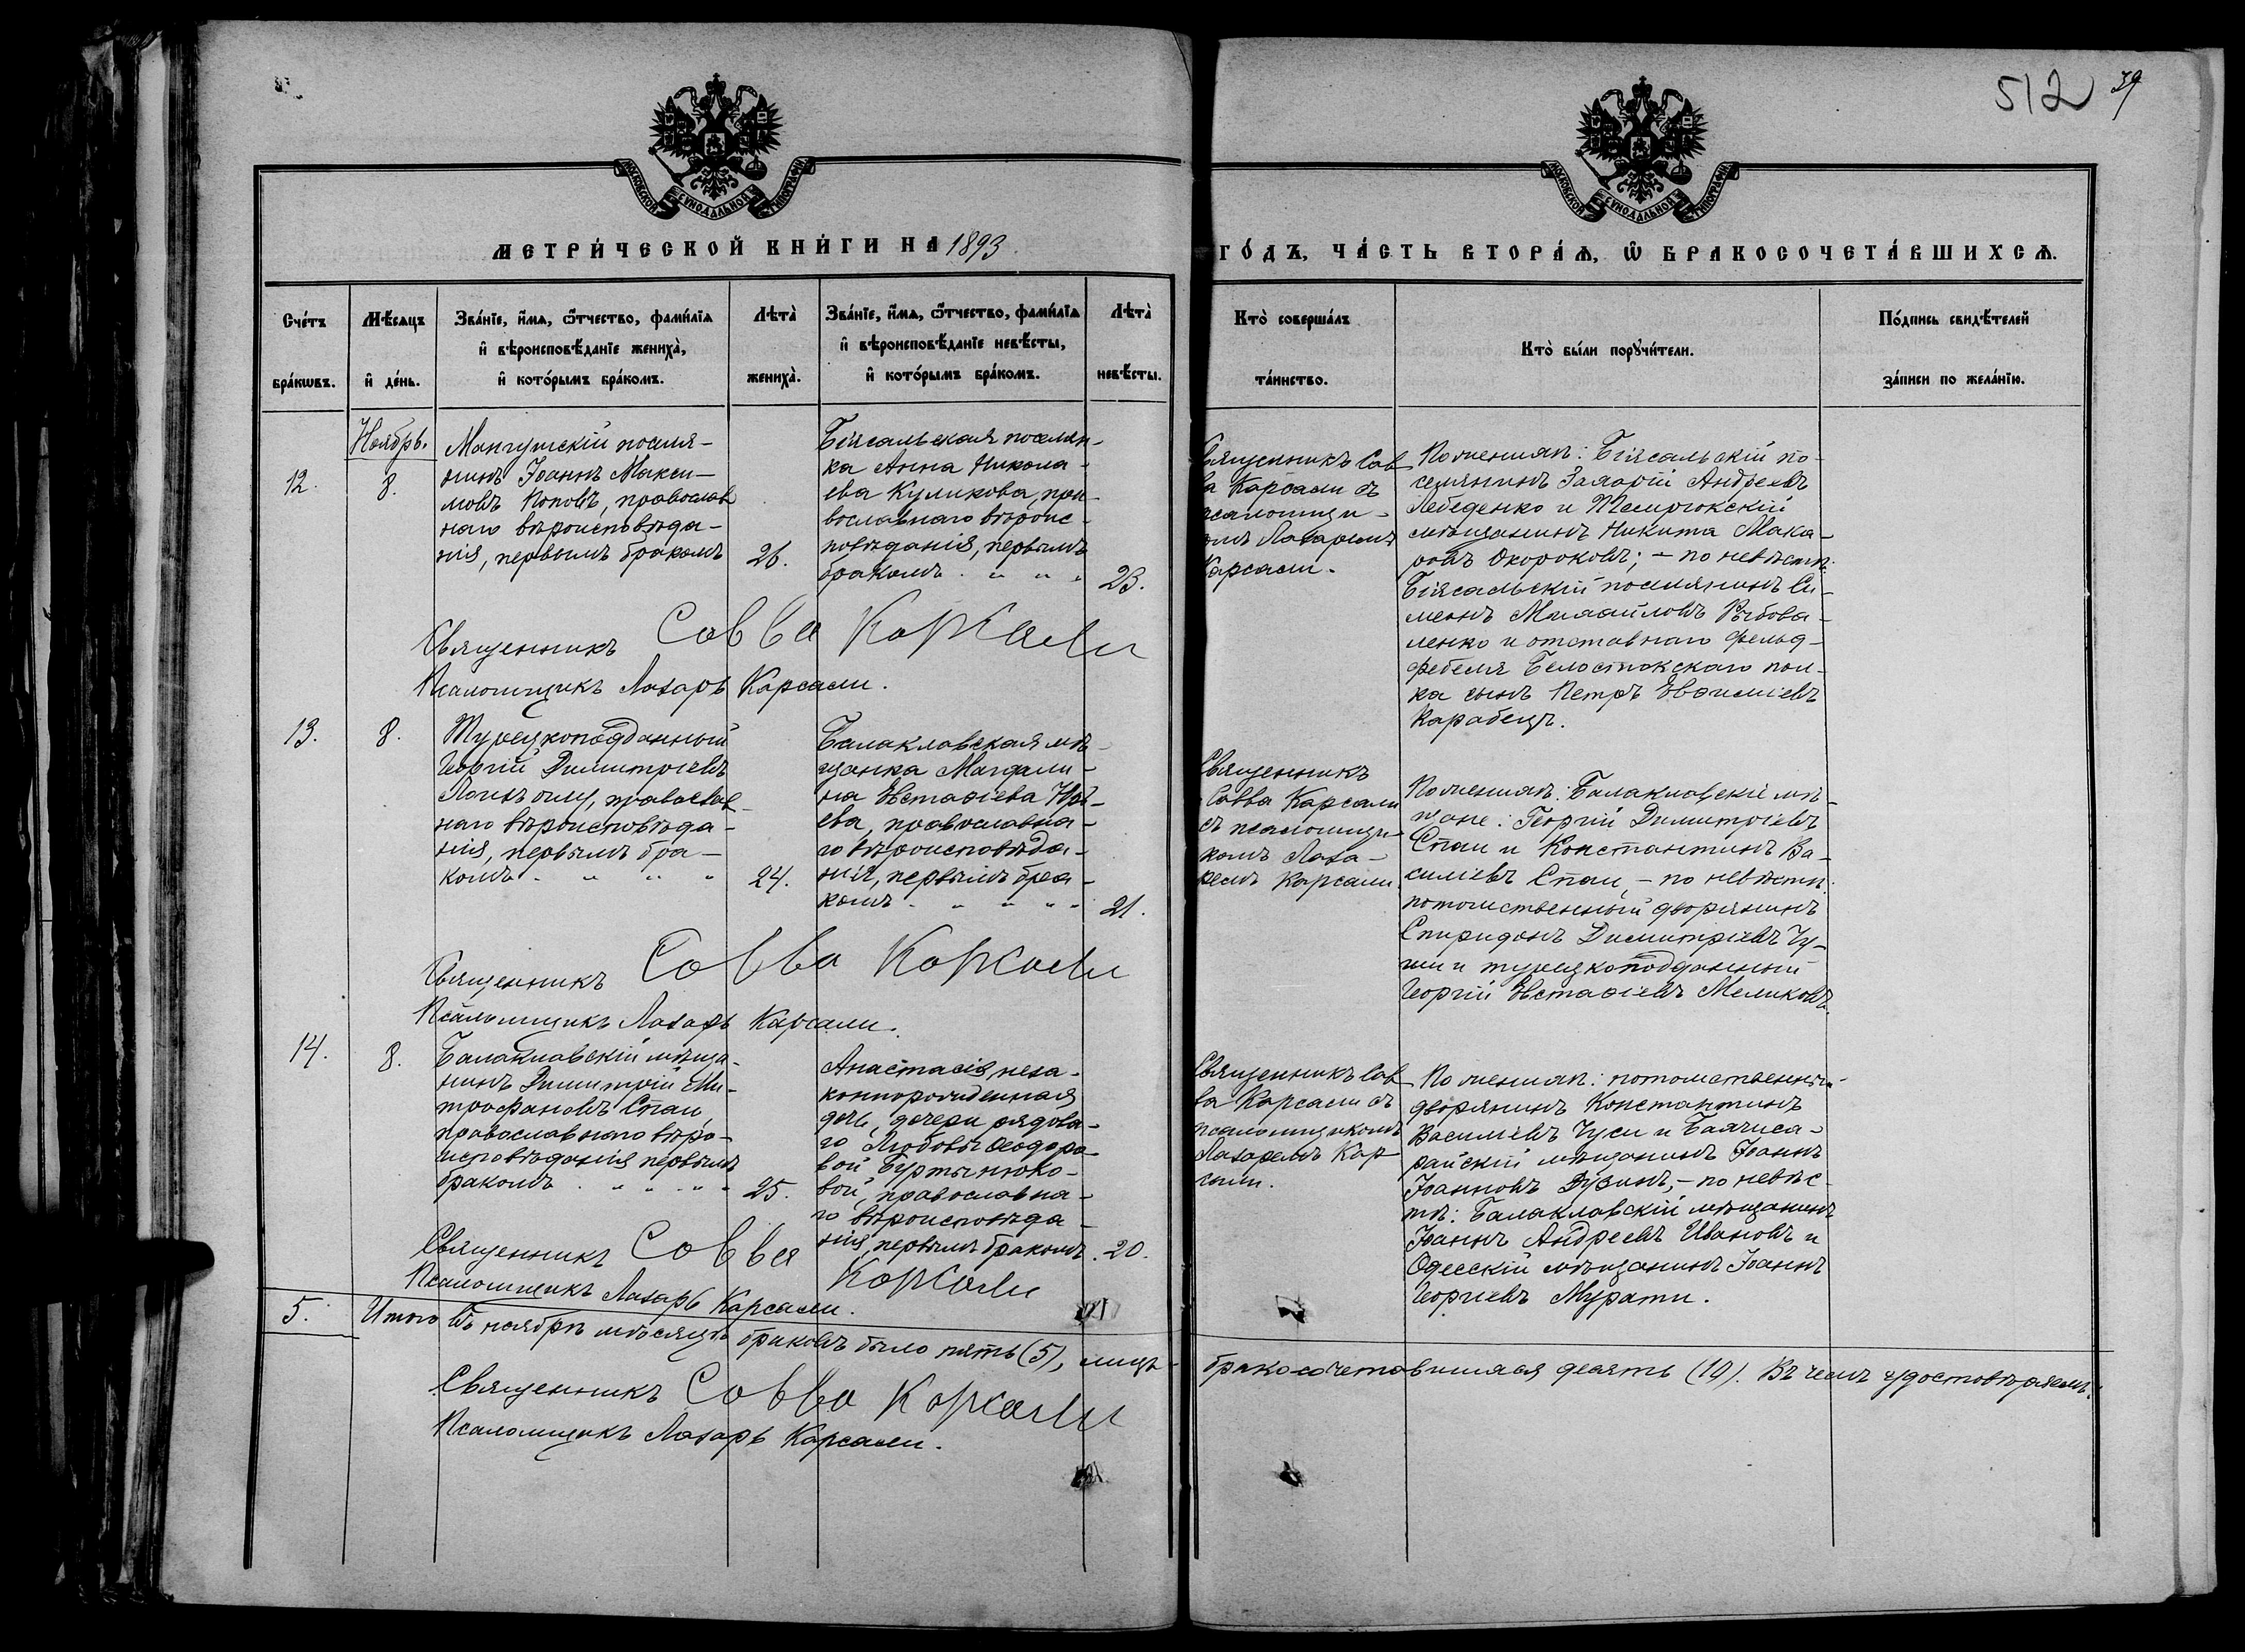 512 39
МОСКОВСКОЙ СѴНОДАЛЬНОЙ ТИПОГРАФІИ
МОСКОВСКОЙ СѴНОДАЛЬНОЙ ТИПОГРАФІИ
МЕТРИ́ЧЕСКОЙ КНИ́ГИ НА 1893
ГО́ДЪ, ЧА́СТЬ ВТОРА́Ѧ, Ѡ҆ БРАКОСОЧЕТА́ВШИХСѦ.
Сче́тъ бра́кѡвъ.
Мѣ́сѧцъ и҆ де́нь.
Зва́нїе, и҆́мѧ, ѻ҆́тчество, фами́лїѧ
и҆ вѣроисповѣ́данїе жениха̀,
и҆ кото́рымъ бра́комъ.
Лѣта̀ жениха̀.
Зва́нїе, и҆́мѧ, ѻ҆́тчество, фами́лїѧ
и҆ вѣроисповѣ́данїе невѣ́сты,
и҆ кото́рымъ бра́комъ.
Лѣта̀ невѣ́сты.
Кто̀ соверша́лъ та́инство.
Кто̀ бы́ли порꙋчи́тели.
По́дпись свидѣ́телей за́писи по жела́нїю.
Ноябрь.
12.
8.
Мангушскій поселя-
нинъ Іоаннъ Макси-
мовъ Поповъ, православ
наго вѣроисповѣда-
нія, первымъ бракомъ
26.
Біясальская поселян-
ка Анна Никола-
ева Куликова, пра-
вославнаго вѣроис-
повѣданія, первымъ
бракомъ . " " "
23.
Священникъ Сав
ва Карсали съ
псаломщи-
комъ Лазаремъ
Карсали.
По женихѣ: Біясальскій по-
селянинъ Захарій Андреевъ
Лебеденко и Темрюкскій
мѣщанинъ Никита Мака-
ровъ Окороковъ; - по невѣстѣ:
Біясальскій поселянинъ Си-
меонъ Михайловъ
ленко и отставнаго фельд-
фебеля Белостокскаго пол-
ка сынъ Петръ
Карабецъ.
Священникъ Савва Карсали
Псаломщикъ Лазарь Карсали.
13.
8.
Турецкоподданный
Георгій Димитріевъ
православ-
наго вѣроисповѣда-
нія, первымъ бра-
комъ . " " "
24.
Балаклавская мѣ-
щанка Магдали-
на Евстафіева
ева, православна-
го вѣроисповѣда-
нія, первымъ бра-
комъ . " " "
21.
Священникъ
Савва Карсали
съ псаломщи-
комъ Лаза-
ремъ Карсали.
По женихѣ: Балаклавскіе мѣ-
щане: Георгій Димитріевъ
Спаи и Константинъ Ва-
силіевъ Спаи, - по невѣстѣ:
потомственный дворянинъ
Спиридонъ Димитріевъ Чу-
си и турецкоподданный
Георгій Евстафіевъ Меликовъ.
Священникъ Савва Карсали
Псаломщикъ Лазарь Карсали.
14.
8.
Балаклавскій мѣща-
нинъ Димитрій Ми-
трофановъ Спаи,
православнаго вѣро-
исповѣданія первымъ
бракомъ . " " "
25.
Анастасія, неза-
коннорожденная
дочь, дочери рядова-
го Любови Ѳеодоро-
вой Буртынюко-
вой, православна-
го вѣроисповѣда-
нія, первымъ бракомъ.
20.
Священникъ Сав
ва Карсали съ
псаломщикомъ
Лазаремъ Кар
сали.
По женихѣ: потомственный
дворянинъ Константинъ
Василіевъ Чуси и Бахчиса-
райскій мѣщанинъ Іоаннъ
Іоанновъ - по невѣс-
тѣ: Балаклавскій мѣщанинъ
Іоаннъ Андреевъ Ивановъ и
Одесскій мѣщанинъ Іоаннъ
Георгіевъ Мурати.
Священникъ Савва Карсали
Псаломщикъ Лазарь Карсали.
5. Итого въ ноябрѣ мѣсяцѣ браковъ было пять (5), лицъ бракосочетавшихся десять (10). Въ чемъ удостовѣряемъ:
Священникъ Савва Карсали
Псаломщикъ Лазарь Карсали.